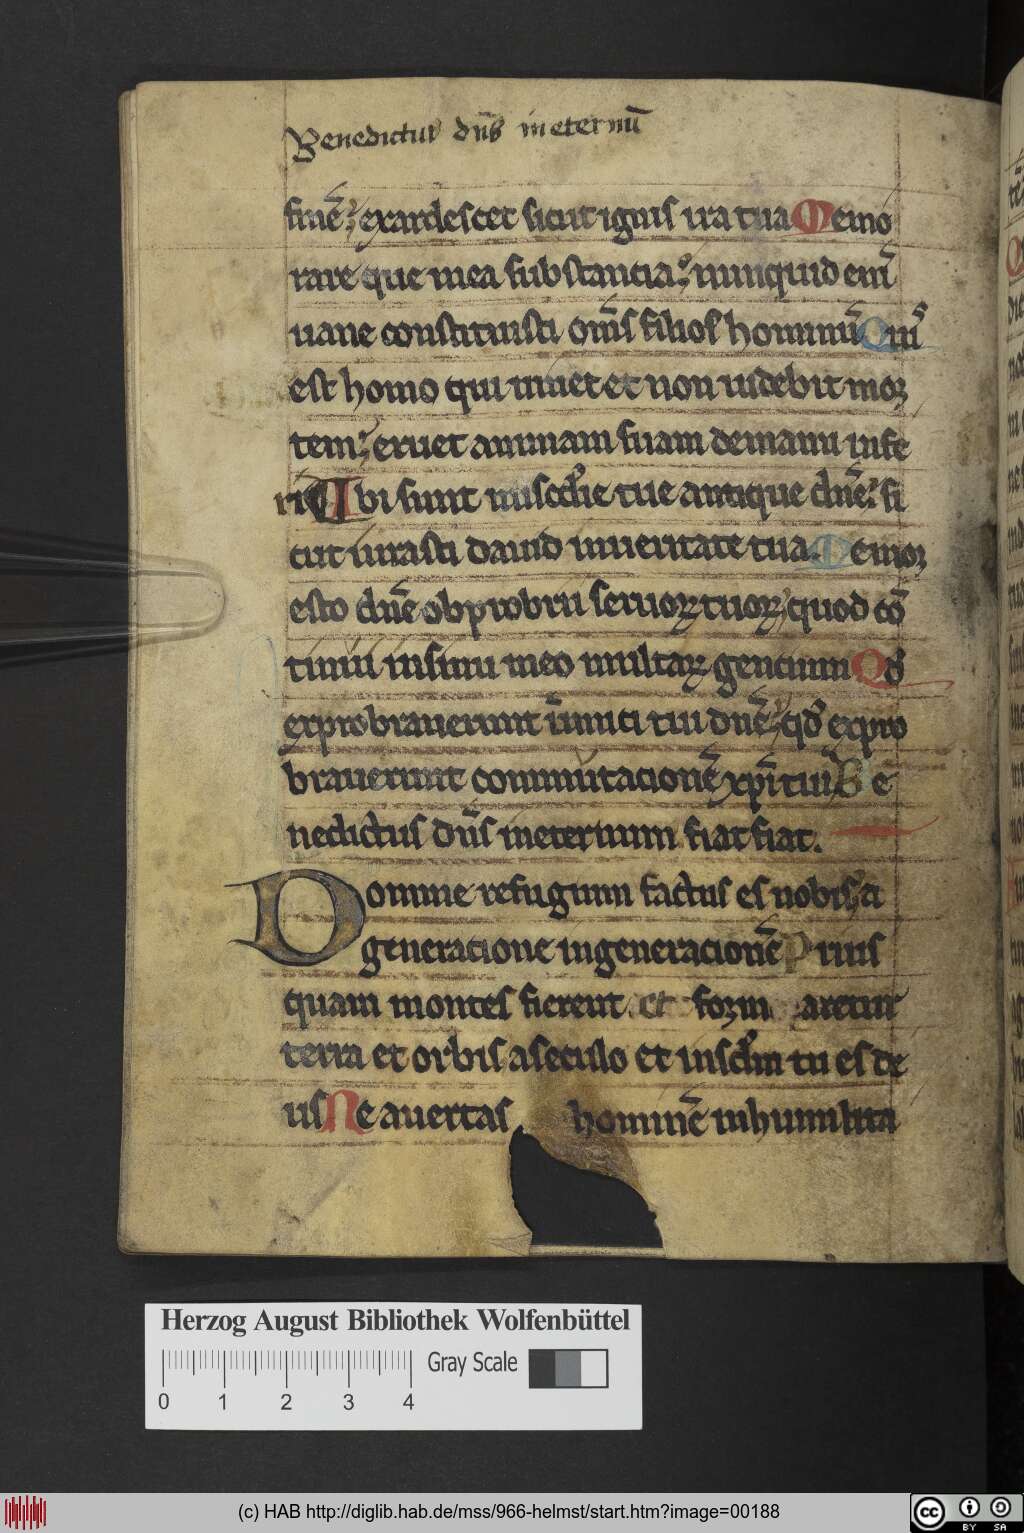 Benedictus dn̄s in eternū
finē? exardescet sicut ignis ira tua Memo
rare que mea substancia? nunquid enī
uane constituisti om̄s filios hominū Quis
est homo qui uiuet et non uidebit mor
tem? eruet animam suam de manu infe
ri Ubi sunt misedie tue antique dn̄e? si
cut iurasti dauid in ueritate tua. Memor
esto dn̄e obprobrii seruoꝝ tuoꝝ quod cō
tinui in sinu meo multaꝝ gencium Qd
exprobrauerunt inimici tui dn̄e qd expro
brauerunt commutacionē xp̄i tui Be
nedictus dn̄s in eternum fiat fiat.
Domine refugium factus es nobis a
generacione in generacionē Prius
quam montes fierent et form aretur
terra et orbis a seculo et in sclm tu es de
us Ne auertas hominē in humilita
Herzog August Bibliothek Wolfenbüttel
Gray Scale
0 1 2 3 4
(c) HAB http://diglib.hab.de/mss/966-helmst/start.htm?image=00188
cc BY SA